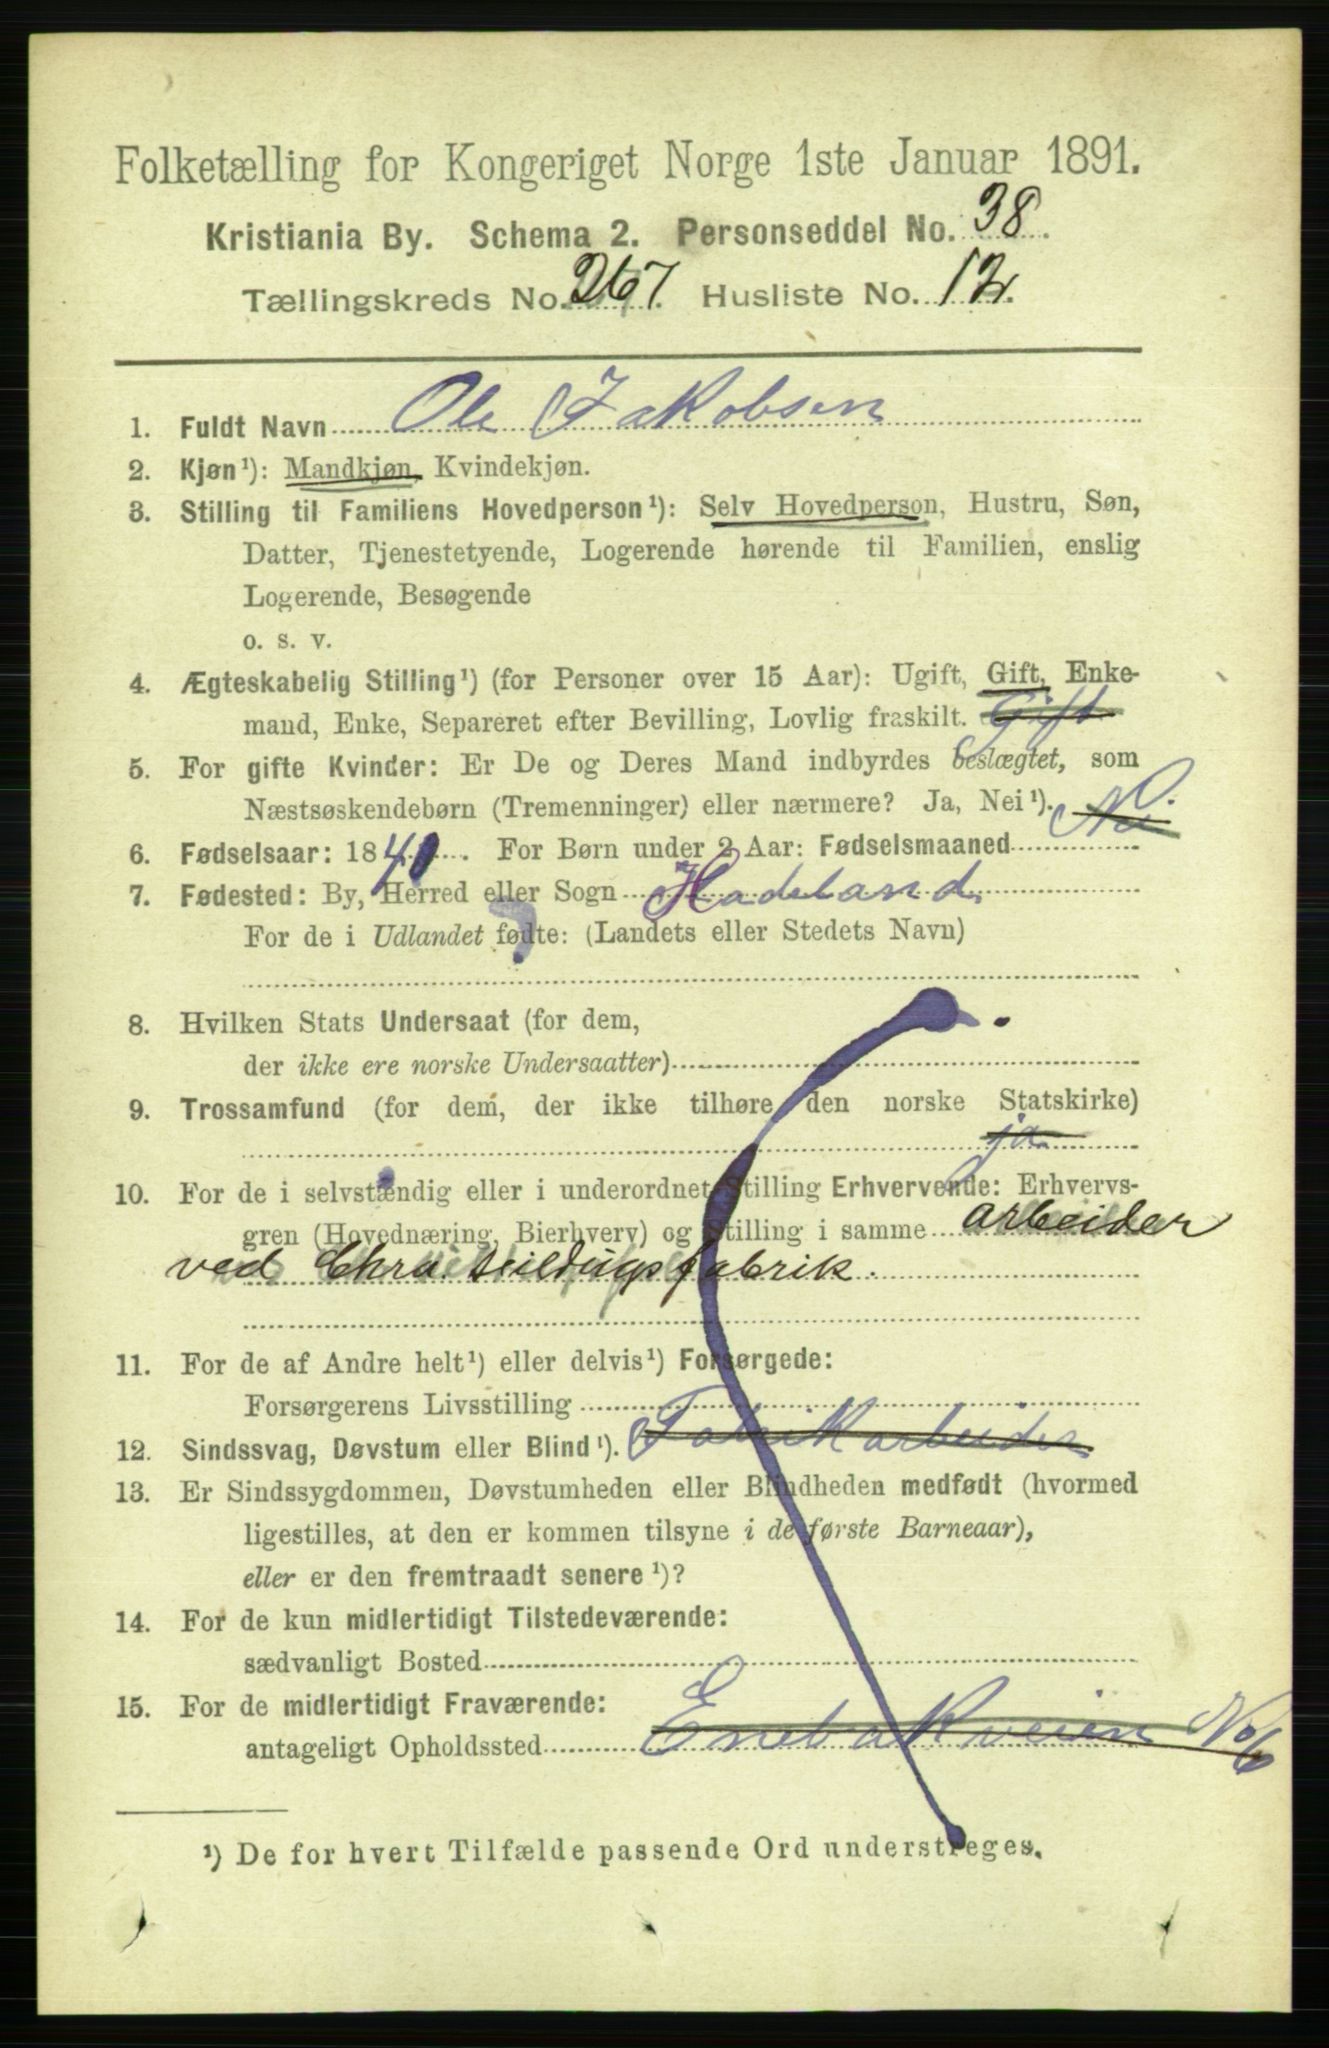 Folketælling for Kongeriget Norge 1ste Januar 1891.
Kristiania By. Schema 2. Personseddel No. 38.
Tællingskreds No. 267. Husliste No. 12.
1. Fuldt Navn Ole Jakobsen
2. Kjøn¹): Mandkjøn, Kvindekjøn.
3. Stilling til Familiens Hovedperson¹): Selv Hovedperson, Hustru, Søn,
Datter, Tjenestetyende, Logerende hørende til Familien, enslig
Logerende, Besøgende
o. s. v.
4. Ægteskabelig Stilling¹) (for Personer over 15 Aar): Ugift, Gift, Enke-
mand, Enke, Separeret efter Bevilling, Lovlig fraskilt. Gift
5. For gifte Kvinder: Er De og Deres Mand indbyrdes beslægtet, som
Næstsøskendebørn (Tremenninger) eller nærmere? Ja, Nei¹). Nei
6. Fødselsaar: 1840. For Børn under 2 Aar: Fødselsmaaned
7. Fødested: By, Herred eller Sogn Hadeland.
For de i Udlandet fødte: (Landets eller Stedets Navn)
8. Hvilken Stats Undersaat (for dem,
der ikke ere norske Undersaatter)
9. Trossamfund (for dem, der ikke tilhøre den norske Statskirke)
ja
10. For de i selvstændig eller i underordnet Stilling Erhvervende: Erhvervs-
gren (Hovednæring, Bierhverv) og Stilling i samme arbeider
ved Chra. Seildugsfabrik.
11. For de af Andre helt¹) eller delvis¹) Forsørgede:
Forsørgerens Livsstilling
12. Sindssvag, Døvstum eller Blind¹). Fabrikarbeider
13. Er Sindssygdommen, Døvstumheden eller Blindheden medfødt (hvormed
ligestilles, at den er kommen tilsyne i de første Barneaar),
eller er den fremtraadt senere¹)?
14. For de kun midlertidigt Tilstedeværende:
sædvanligt Bosted
15. For de midlertidigt Fraværende:
antageligt Opholdssted Enebakveien No 6
¹) De for hvert Tilfælde passende Ord understreges.